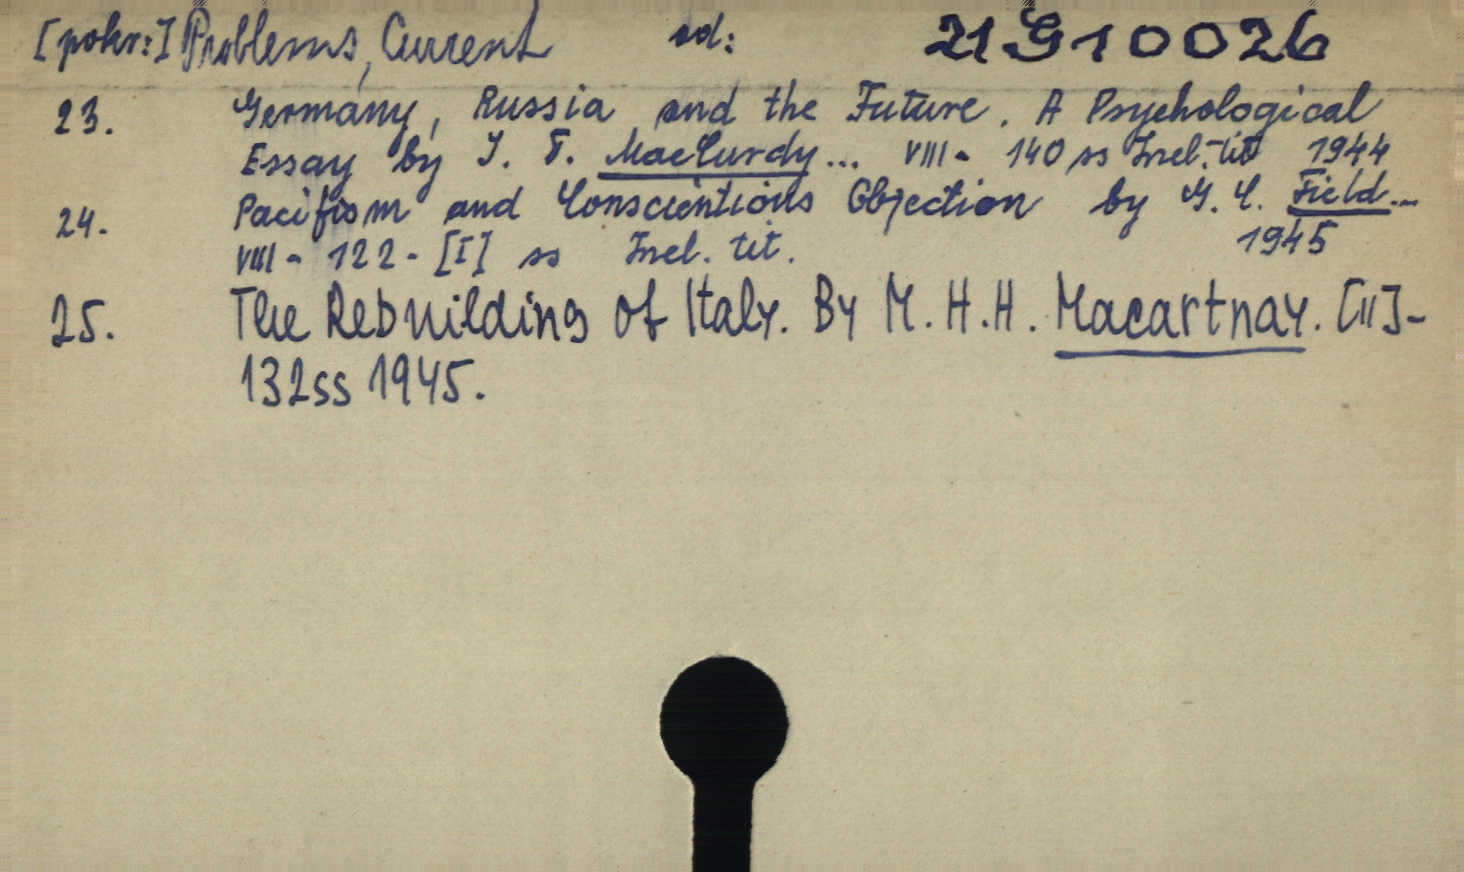 [pokr:] Problems, Current sd: 21 G 10026
23. Germany, Russia and the Future. A Psychological
Essay by J. T. MacCurdy... VIII - 140 ss Incl. tit 1944
24. Pacifism and Conscientious Objection by G. C. Field...
VIII - 122 - [I] ss Incl. tit. 1945
25. The Rebuilding of Italy. By M. H. H. Macartnay. [II] -
132ss 1945.